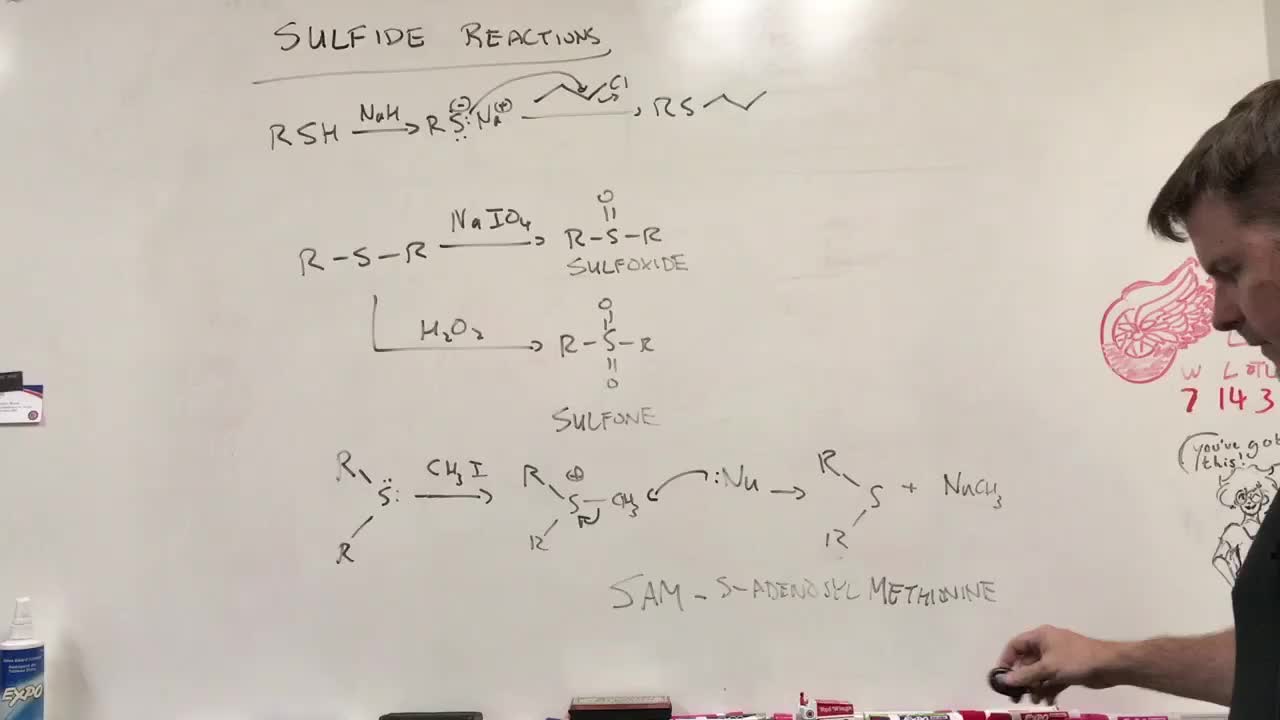 SULFIDE REACTIONS
RSH NaH RS: Na Cl RS
R-S-R NaIO4 O
R-S-R
SULFOXIDE
H2O2 O
R-S-R
O
SULFONE
R S: R CH3I R ⊕ S-CH3 R :Nu R S R + NuCH3
SAM - S-ADENOSYL METHIONINE
W L OTL
7 14 3
you've got
this!
EXPO
Red Wings
EXPO